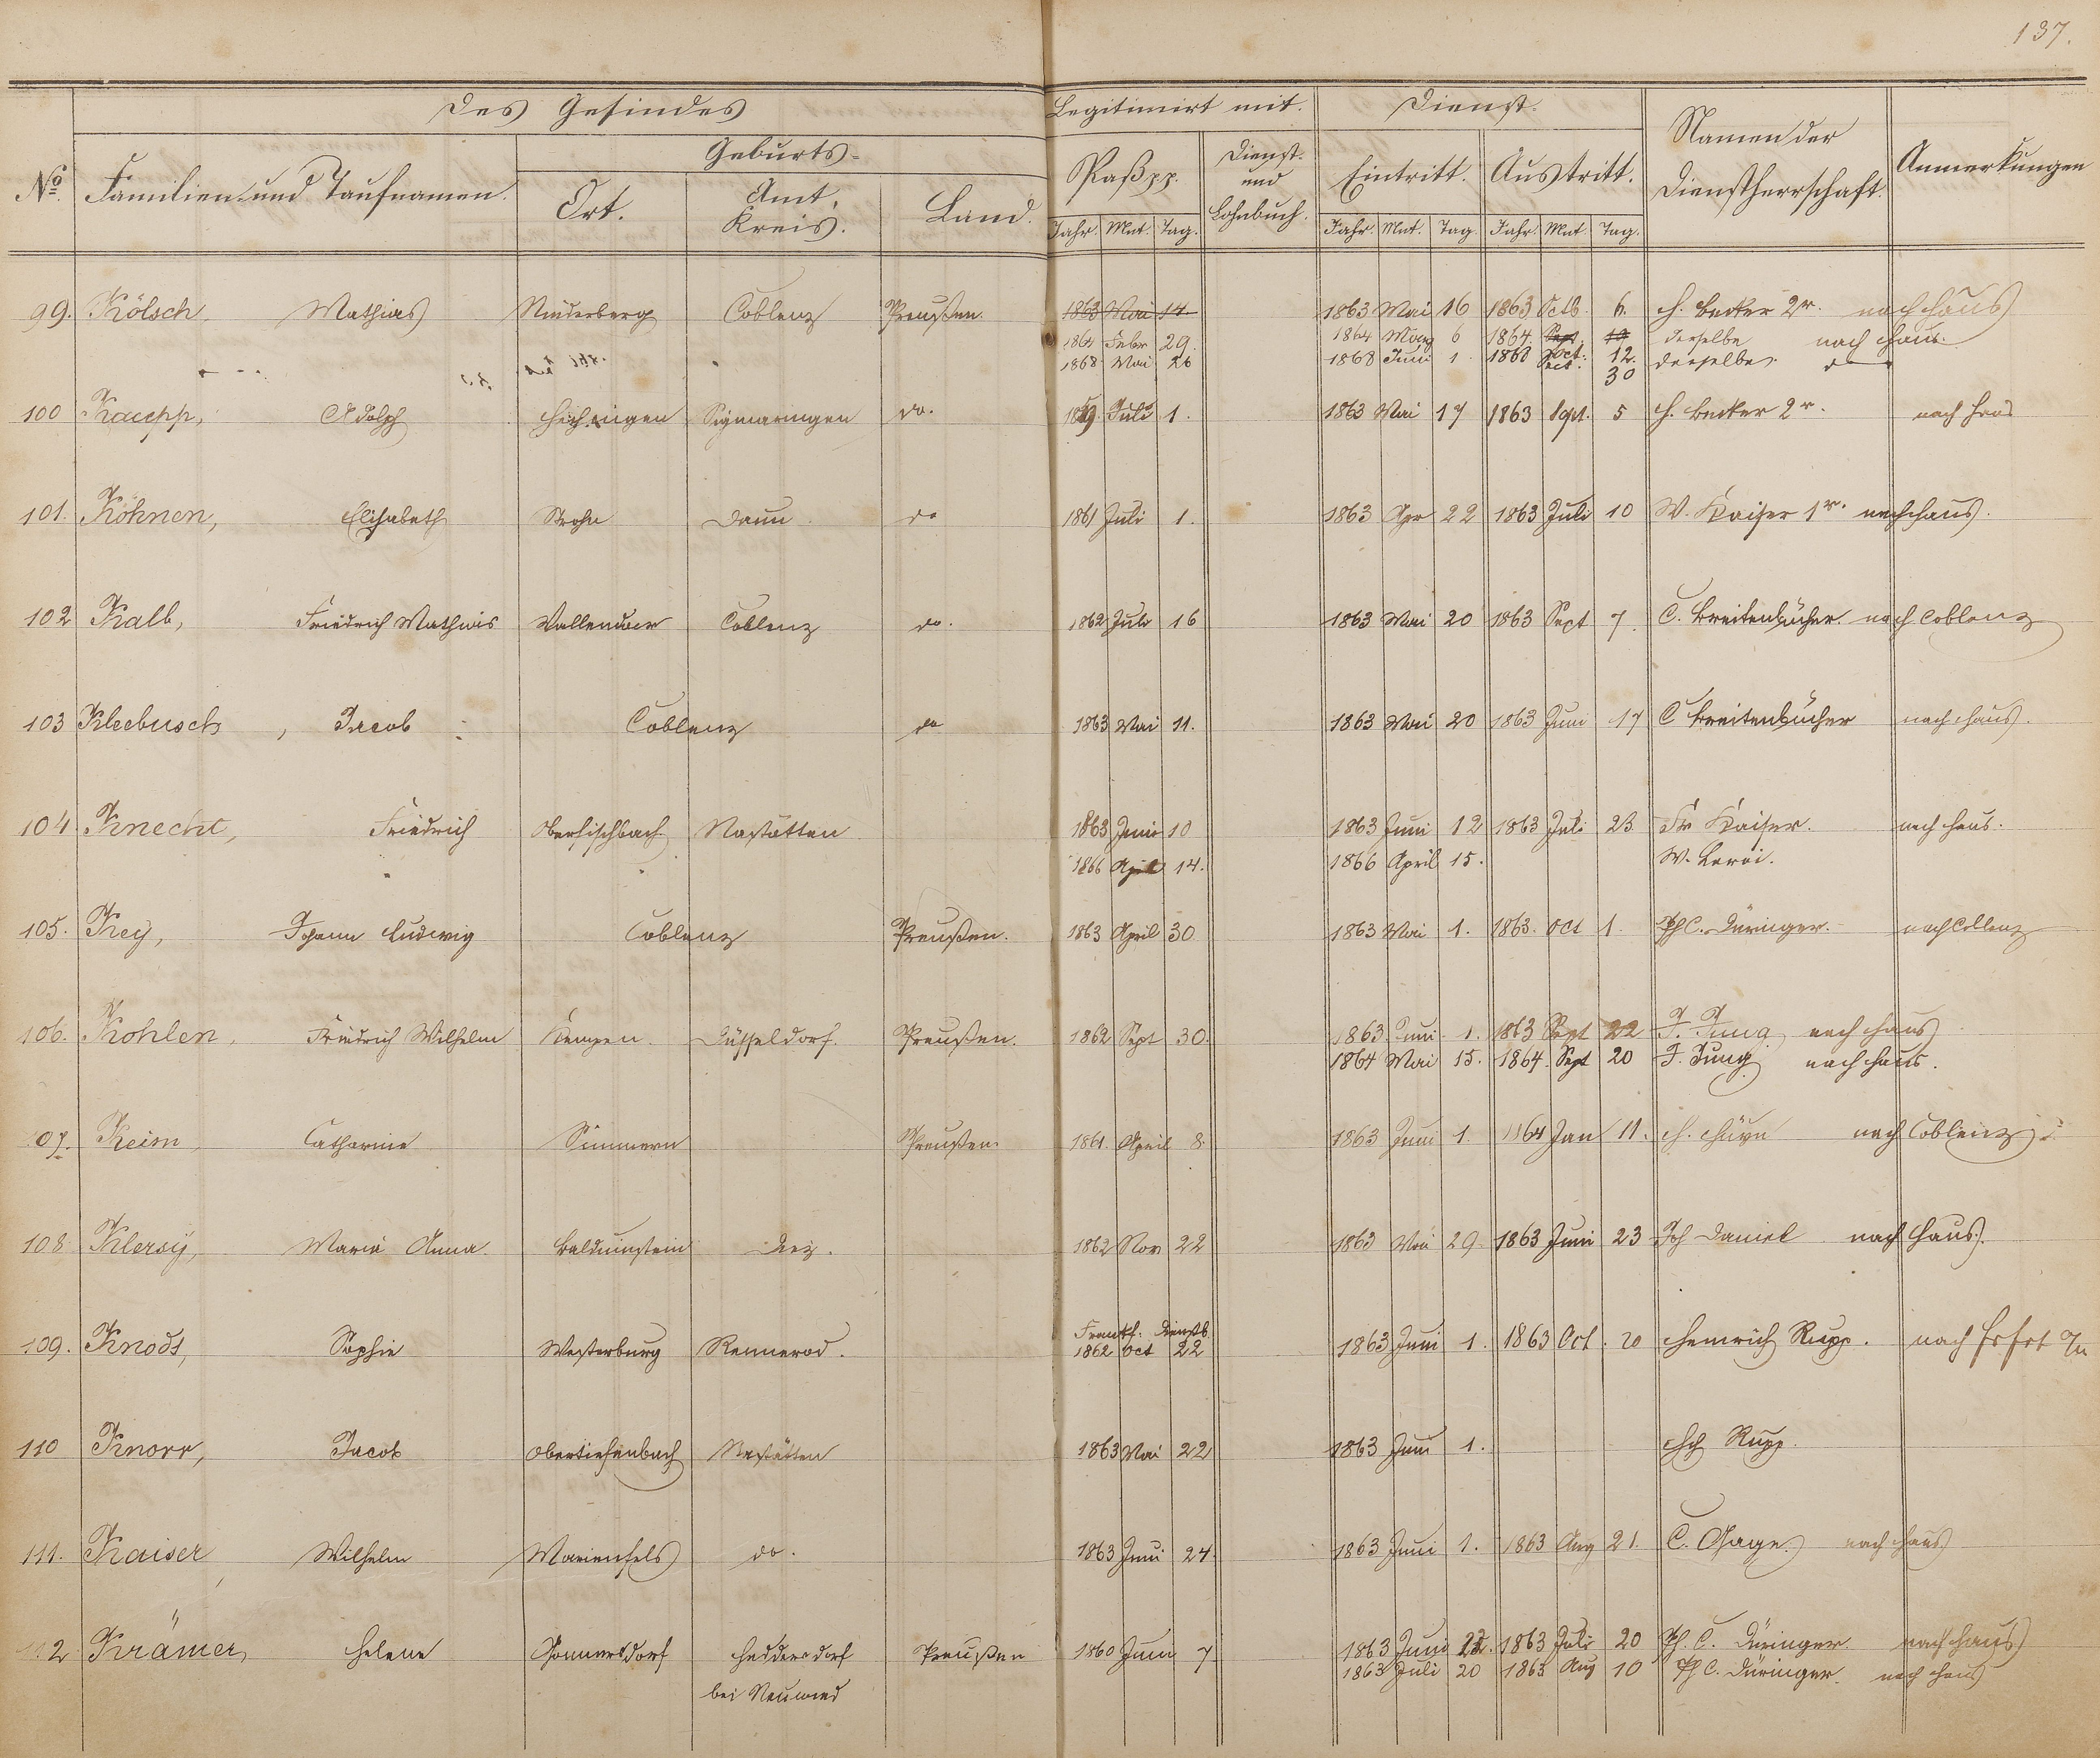 137.
Des Gesindes
Legitimirt mit.
Dienst.
Namen der Dienstherrschaft.
Anmerkungen
No. Familien- und Taufnamen.
Geburts-
Ort. Amt, Kreis. Land.
Paß pp. Dienst- und Lohnbuch.
Eintritt. Austritt.
Jahr. Mnt. Tag. Jahr. Mnt. Tag. Jahr. Mnt. Tag.
99. Kölsch, Mathias Neuderberg Coblenz Preußen. 1863 Mai 14 1863 Mai 16 1863 Octb. 6. H. Becker 2r. nach Haus
1864 Febr 29. 1864 März 6 1864. Sept. 10 derselbe nach Haus.
1868 Mai 26 1868 Juni 1 1868 Oct. 12. derselbe, do
30
100 Kaepp, Adolph Hechingen Sigmaringen do. 1859 Juli 1. 1863 Mai 17 1863 Sept. 5 H. Becker 2r. nach Haus
101. Köhnen, Elisabeth Strohn Daun do 1861 Juli 1. 1863 Apr 22 1863 Juli 10 W. Kaiser 1r. nach Haus.
102 Kalb, Friedrich Mathias Vallendar Coblenz do. 1862 Juli 16 1863 Mai 20 1863 Sept 7. C. Breitenbücher nach Coblenz
103 Kleebusch, Jacob Coblenz do 1863 Mai 11. 1863 Mai 20 1863 Juni 17 C Breitenbücher nach Haus.
104 Knecht, Friedrich Oberfischbach Nastätten 1863 Juni 10 1863 Juni 12 1863 Juli 23 Fr Kaiser. nach Haus.
1866 April 14. 1866 April 15. W. Leroi.
105. Key, Johann Ludwig Coblenz Preußen. 1863 April 30 1863 Mai 1. 1863. Oct 1. Ph C. Düringer. nach Coblenz
106. Kohlen, Friedrich Wilhelm Kempen. Düsseldorf. Preußen. 1862 Sept 30. 1863 Juni 1. 1863 Sept 22 J. Jung nach Haus
1864 Mai 15. 1864. Sept 20 J. Jung nach Haus.
107. Keim, Catharine Simmern Preußen. 1861. April 8. 1863 Juni 1. 1864 Jan 11. nach Coblenz
108. Klersÿ, Maria Anna Balduinstein Diez. 1862 Nov 22 1863 Mai 29. 1863 Juni 23 Joh Daniel nach Haus.
109. Knodt, Sophie Westerburg Rennerod. Frankf. Dienstb. 1862 Oct 22 1863 Juni 1. 1863 Oct. 20 Heinrich Rupp. nach Frfrt a/M
110 Knorr, Jacob Obertiefenbach Nastätten 1863 Mai 22 1863 Juni 1. Hch Rupp.
111. Kaiser, Wilhelm Marienfels do. 1863 Juni 24. 1863 Juni 1. 1863 Aug 21. C. nach Haus
112 Krämer, Helene Gonnersdorf Heddersdorf Preußen 1860 Juni 7. 1863 Juni 22. 1863 Juli 20 Ph. C. Düringer. nach Haus
bei Neuwied 1863 Juli 20 1863 Aug 10 Ph C. Düringer. nach Haus